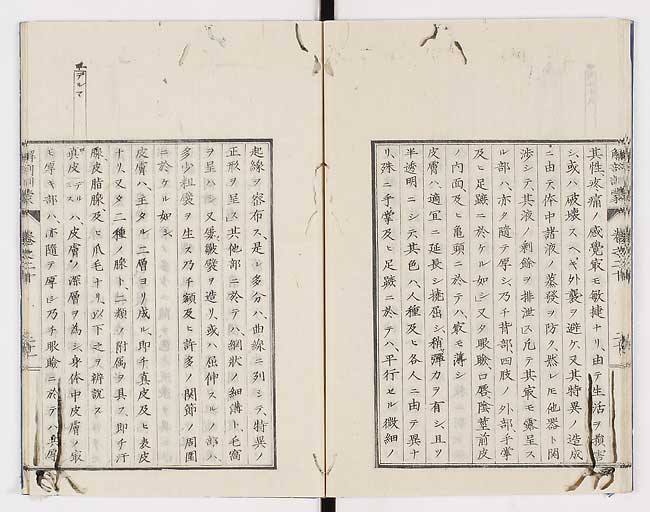 其性疼痛ノ感覺最モ敏捷ナリ、由テ生活ヲ損害
シ、或ハ破壊スヘキ外襲ヲ避ケ、又其特異ノ造成
ニ由テ、体中諸液ノ蒸發ヲ防ク、然レモ他器ト関
渉シテ、其液ノ剰餘ヲ排泄ス、凡テ其最モ露呈ス
ル部ハ、亦タ随テ厚シ乃チ背部四肢ノ外部手掌
及ヒ足蹠ニ於ケル如シ、又タ眼瞼、口唇、陰莖前皮
ノ内面、及ヒ亀頭ニ於テハ、最モ薄シ
皮膚ハ、適宜ニ延長シ撓屈シ、稍弾力ヲ有シ、且ツ
半透明ニシテ其色ハ、人種及ヒ各人ニ由テ異ナ
リ、殊ニ手掌及ヒ足蹠ニ於テハ、平行セル微細ノ
解剖訓蒙 巻之二十
起線ヲ密布ス、是レ多分ハ、曲線ニ列シテ、特異ノ
正形ヲ呈ス、其他部ニ於テハ、網状ノ細溝ト、毛窩
ヲ呈ハシ、又タ皺襞ヲ造リ、或ハ屈伸スルノ部ハ、
多少粗襞ヲ生ス、乃チ額及ヒ許多ノ関節ノ周圍
ニ於ケル如シ
皮膚ハ、主タル二層ヨリ成ル、即チ真皮及ヒ表皮
ナリ、又タ二種ノ腺ト、二類ノ附属ヲ具フ、即チ汗
腺、皮脂腺、及ヒ爪毛ナリ、以下之ヲ辨説ス
デルマ
真皮 デルマ ハ、皮膚ノ深層ヲ為シ、身体中皮膚ノ最
モ厚キ部ハ、亦随テ厚シ、乃チ眼瞼ニ於テハ其厚
解剖訓蒙 巻之二十